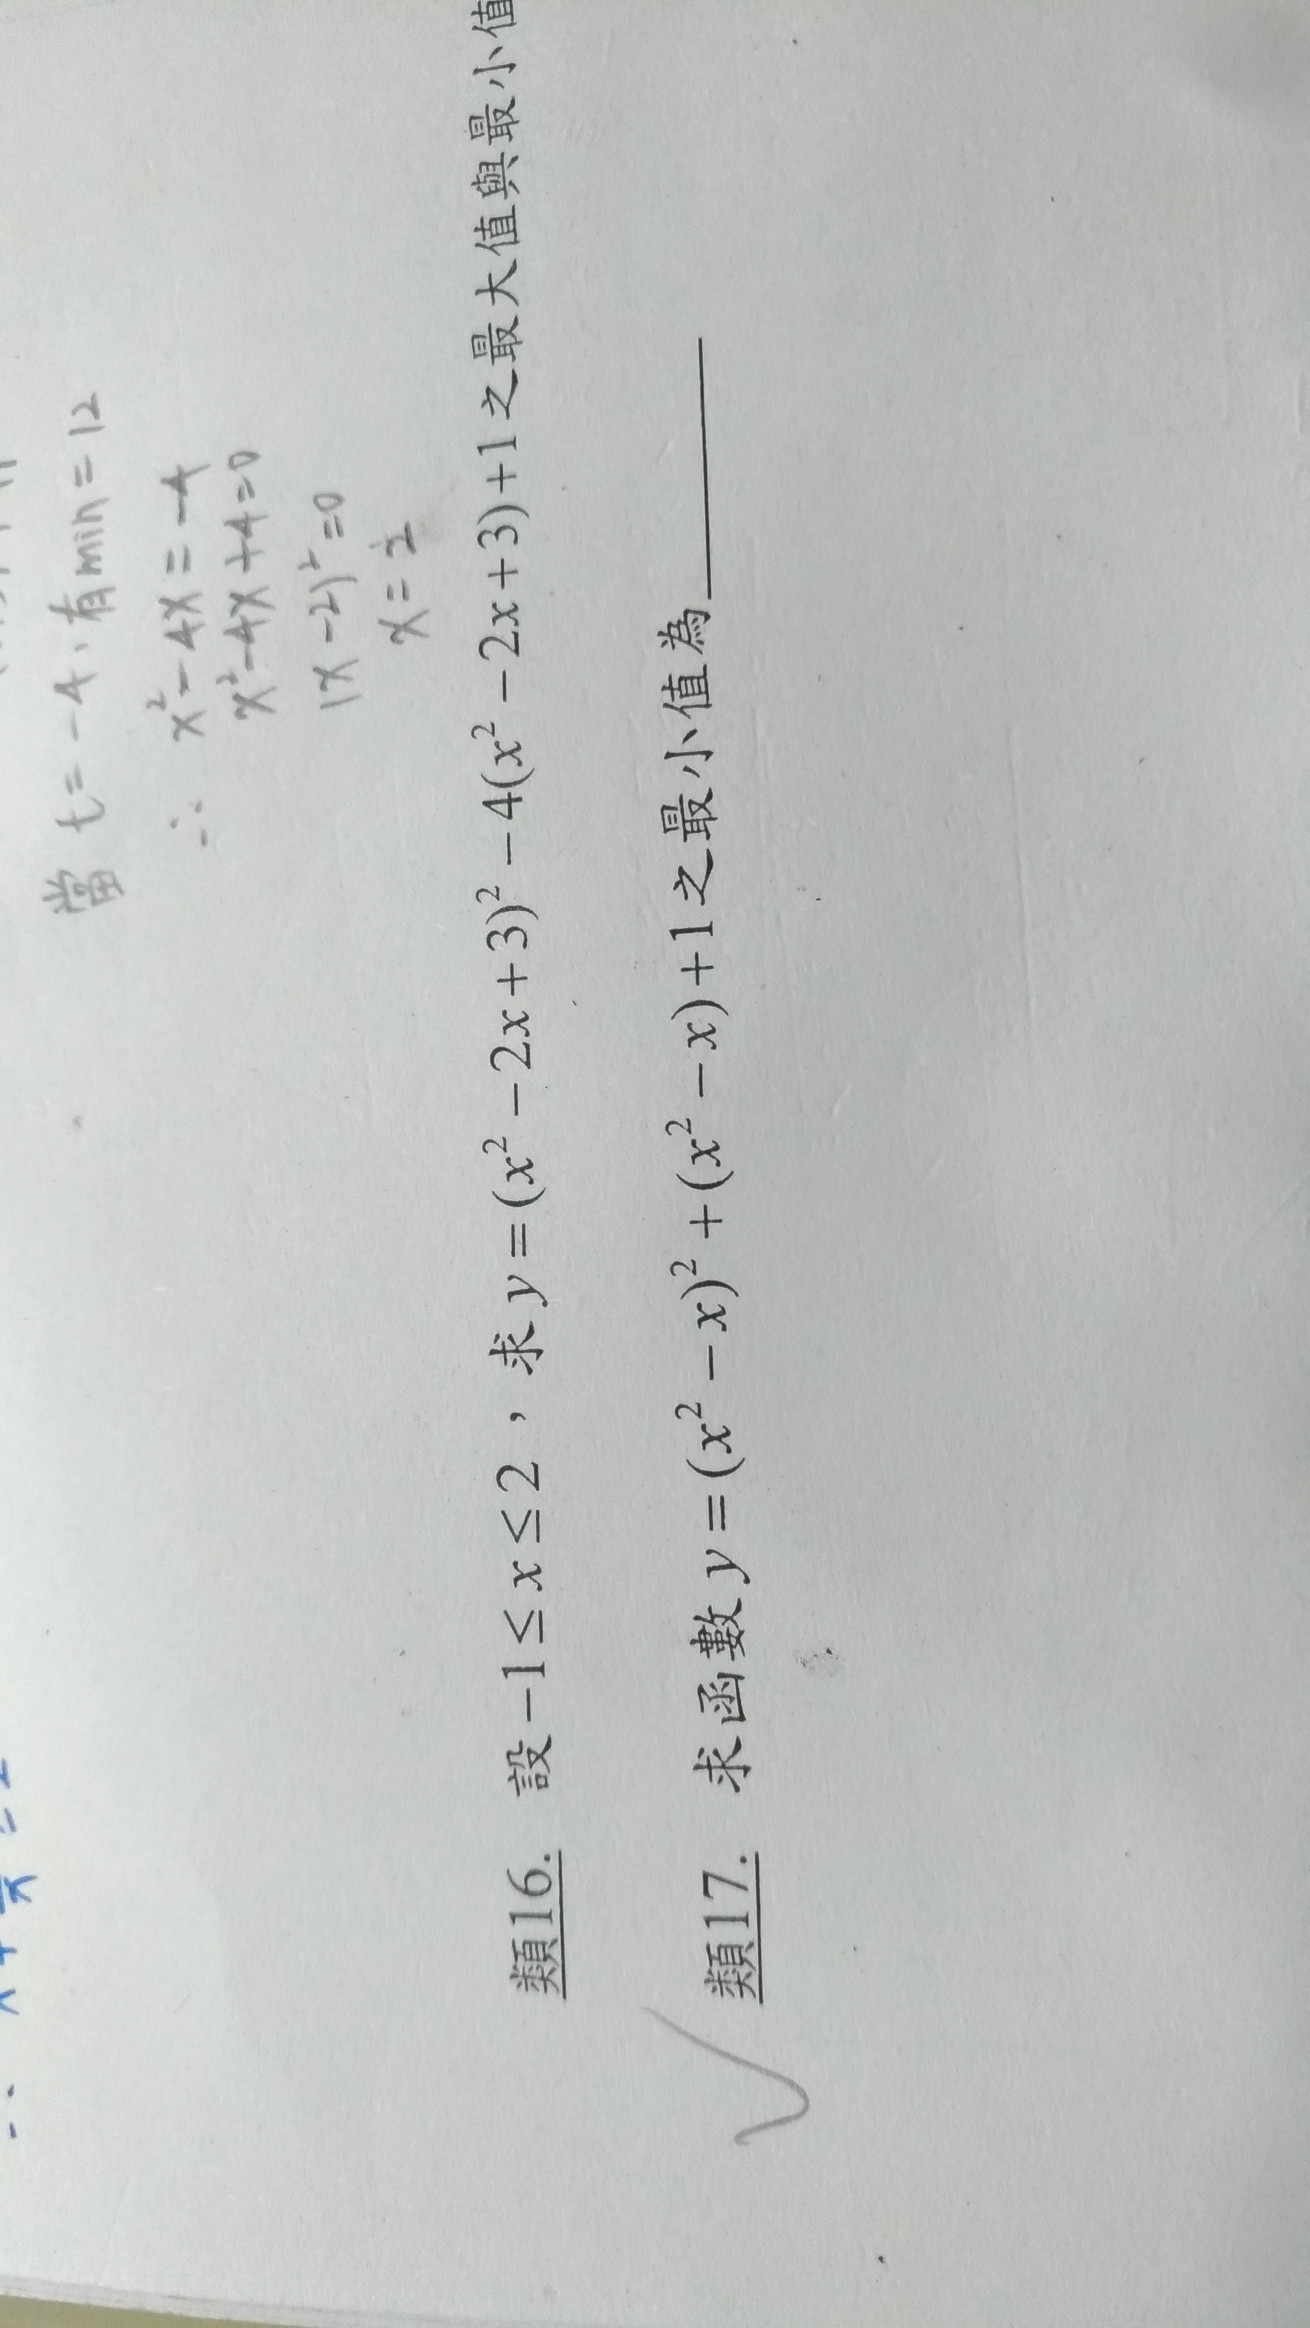 當 t=-4，有min=12
∴ x²-4x=-4
x²-4x+4=0
(x-2)²=0
x=2
類16. 設-1≤x≤2，求y=(x²-2x+3)²-4(x²-2x+3)+1之最大值與最小值
類17. 求函數y=(x²-x)²+(x²-x)+1之最小值為